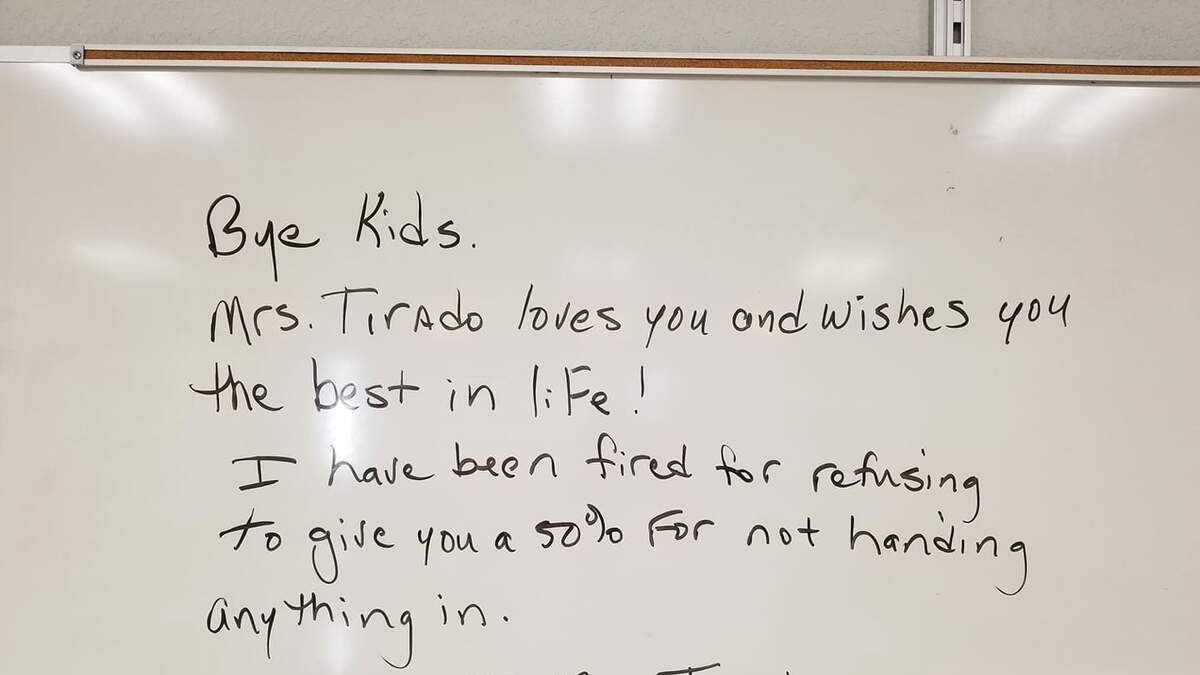 Bye Kids.
Mrs. Tirado loves you and wishes you
the best in life!
I have been fired for refusing
to give you a 50% for not handing
anything in.